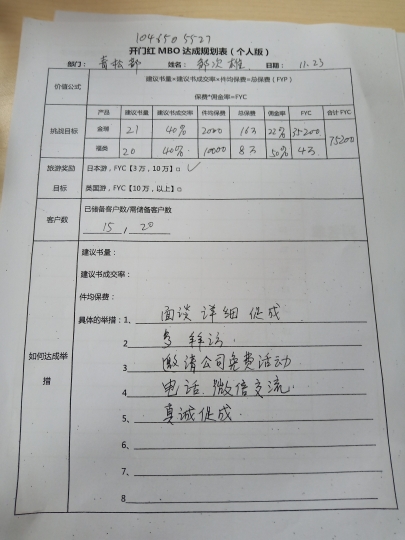 1046505527
开门红 MBO 达成规划表（个人版）
部门： 青松部 姓名： 郜次雄 日期： 11.23
价值公式 建议书量*建议书成交率*件均保费=总保费（FYP）
保费*佣金率=FYC
挑战目标 产品 建议书量 建议书成交率 件均保费 总保费 佣金率 FYC 合计 FYC
金瑞 21 40% 2000 16万 22% 35200 75200
福类 20 40% 10000 8万 50% 4万
旅游奖励目标 日本游，FYC【3万，10万】□ ✓
美国游，FYC【10万，以上】□
客户数 已储备客户数/需储备客户数
15 , 20
如何达成举措 建议书量：
建议书成交率：
件均保费：
具体的举措：1、 面谈 详细 促成
2 拜访
3 邀请公司免费活动
4 电话.微信交流.
5、 真诚促成.
6、
7、
8